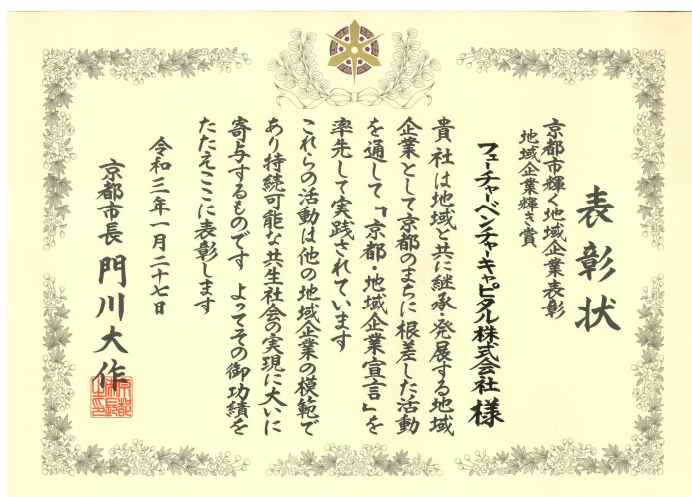 表彰状
京都市輝く地域企業表彰
地域企業輝き賞
フューチャーベンチャーキャピタル株式会社 様
貴社は地域と共に継承・発展する地域
企業として京都のまちに根差した活動
を通して、「京都・地域企業宣言」を
率先して実践されています
これらの活動は他の地域企業の模範で
あり持続可能な共生社会の実現に大いに
寄与するものです よってその御功績を
たたえここに表彰します
令和三年一月二十七日
京都市長 門川大作